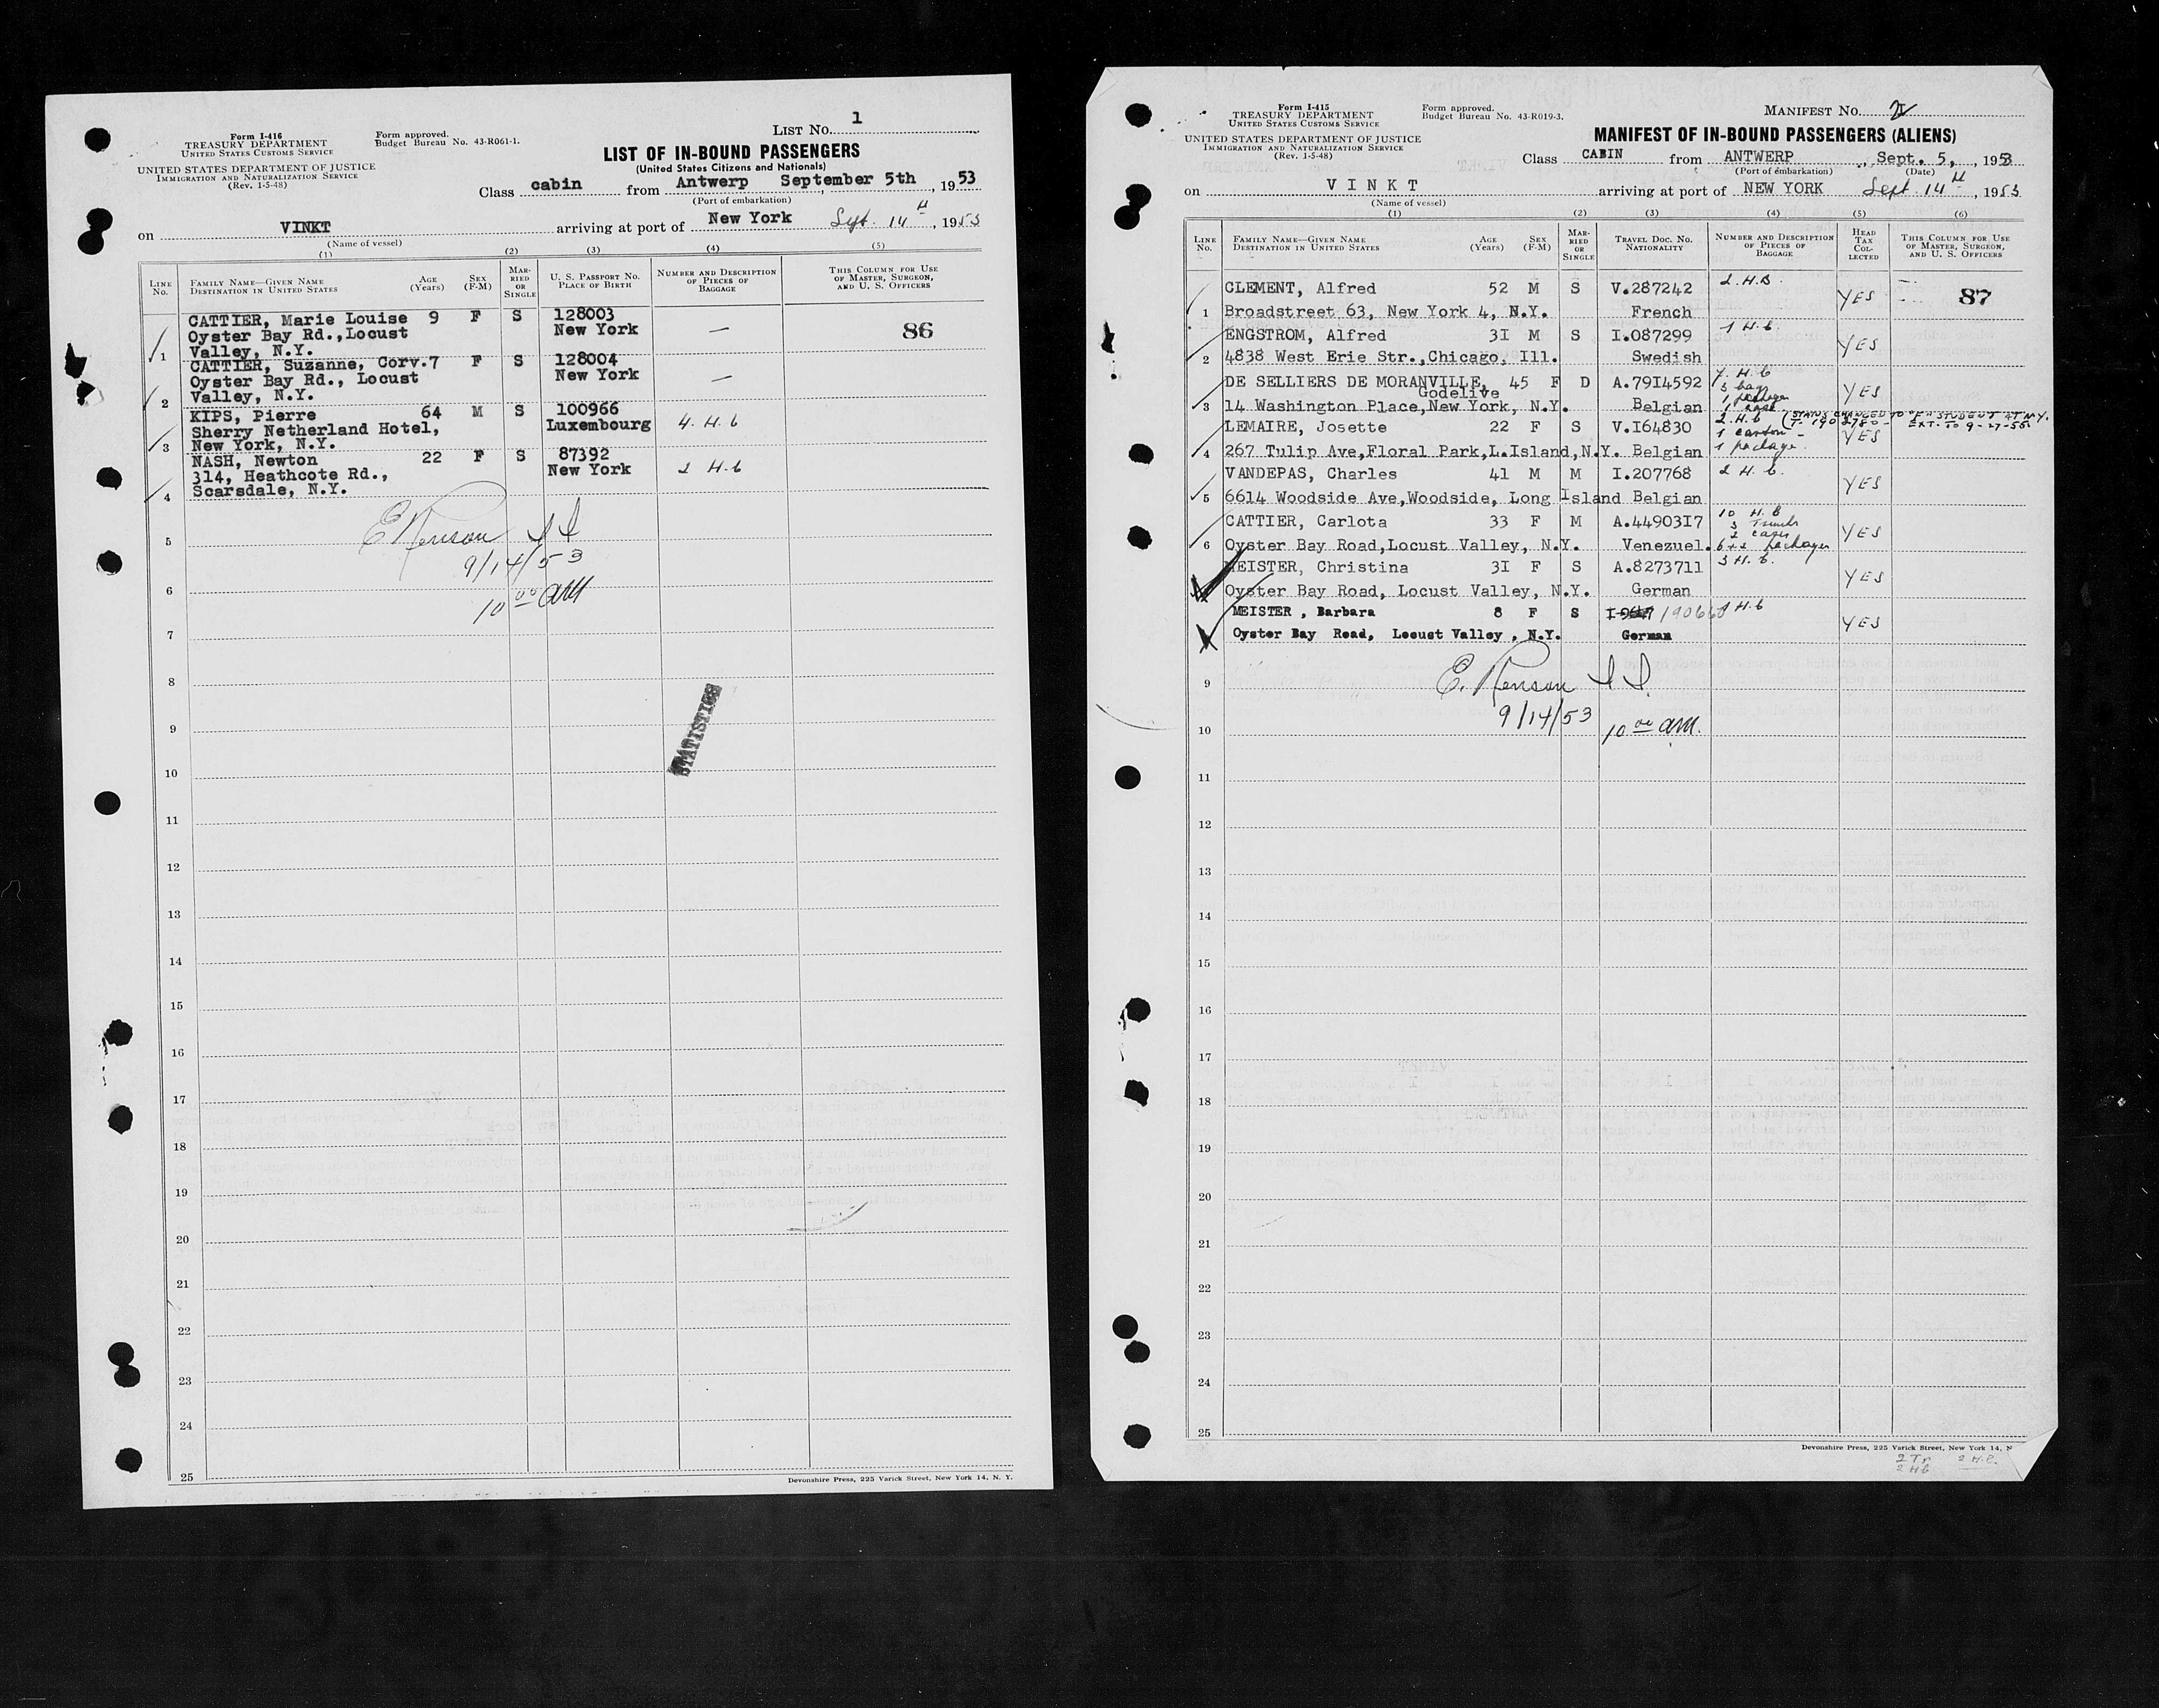 Form I-416
TREASURY DEPARTMENT
UNITED STATES CUSTOMS SERVICE
UNITED STATES DEPARTMENT OF JUSTICE
IMMIGRATION AND NATURALIZATION SERVICE
(Rev. 1-5-48)
Form approved.
Budget Bureau No. 43-R061-1.
LIST No. 1
LIST OF IN-BOUND PASSENGERS
(United States Citizens and Nationals)
Class cabin from Antwerp September 5th, 1953
(Port of embarkation)
on VINKT arriving at port of New York Sept. 14th, 1953
(Name of vessel)
(1) (2) (3) (4) (5)
LINE No. FAMILY NAME—GIVEN NAME DESTINATION IN UNITED STATES AGE (Years) SEX (F-M) MARRIED OR SINGLE U. S. PASSPORT NO. PLACE OF BIRTH NUMBER AND DESCRIPTION OF PIECES OF BAGGAGE THIS COLUMN FOR USE OF MASTER, SURGEON, AND U. S. OFFICERS
CATTIER, Marie Louise 9 F S 128003 — 86
Oyster Bay Rd.,Locust New York
1 Valley, N.Y.
CATTIER, Suzanne, Corv.7 F S 128004 —
Oyster Bay Rd., Locust New York
2 Valley, N.Y.
KIPS, Pierre 64 M S 100966 4. H. b
Sherry Netherland Hotel, Luxembourg
3 New York, N.Y.
NASH, Newton 22 F S 87392 2 H.b
314, Heathcote Rd., New York
4 Scarsdale, N.Y.
E Renson I I
5
9/14/53
6
10 00 am
7
8
STATISTICS
9
10
11
12
13
14
15
16
17
18
19
20
21
22
23
24
25
Devonshire Press, 225 Varick Street, New York 14, N. Y.
Form I-415
TREASURY DEPARTMENT
UNITED STATES CUSTOMS SERVICE
UNITED STATES DEPARTMENT OF JUSTICE
IMMIGRATION AND NATURALIZATION SERVICE
(Rev. 1-5-48)
Form approved.
Budget Bureau No. 43-R019-3.
MANIFEST No.
MANIFEST OF IN-BOUND PASSENGERS (ALIENS)
Class CABIN from ANTWERP, Sept. 5, , 1953
(Port of embarkation) (Date)
on VINKT arriving at port of NEW YORK Sept. 14th, 1953
(Name of vessel)
(1) (2) (3) (4) (5) (6)
LINE No. FAMILY NAME—GIVEN NAME DESTINATION IN UNITED STATES AGE (Years) SEX (F-M) MARRIED OR SINGLE TRAVEL DOC. NO. NATIONALITY NUMBER AND DESCRIPTION OF PIECES OF BAGGAGE HEAD TAX COLLECTED THIS COLUMN FOR USE OF MASTER, SURGEON, AND U. S. OFFICERS
CLEMENT, Alfred 52 M S V.287242 2. H.B. YES 87
1 Broadstreet 63, New York 4, N.Y. French
ENGSTROM, Alfred 3I M S I.087299 1 H.b. YES
2 4838 West Erie Str.,Chicago, Ill. Swedish
DE SELLIERS DE MORANVILLE, 45 F D A.79I4592 7. H.b 3 bags YES
Godelive
3 14 Washington Place,New York, N.Y. Belgian 1 package 1 case
LEMAIRE, Josette 22 F S V.I64830 2 H.b 1 carton YES
(STATUS CHANGED TO OF A STUDENT AT N.Y.
EXT. TO 9-27-55
4 267 Tulip Ave,Floral Park,L.Island,N.Y. Belgian 1 package
VANDEPAS, Charles 41 M M I.207768 2 H. b. YES
5 6614 Woodside Ave,Woodside, Long Island Belgian
CATTIER, Carlota 33 F M A.44903I7 10 H.B 3 Trunks 2 cases YES
6 Oyster Bay Road,Locust Valley, N.Y. Venezuel. 6+2 packages
MEISTER, Christina 3I F S A.8273711 3 H. b. YES
Oyster Bay Road, Locust Valley, N.Y. German
MEISTER , Barbara 8 F S 190660 1 H.b YES
Oyster Bay Road, Locust Valley , N.Y. German
E. Renson I I.
9
9/14/53 10 00 am.
10
11
12
13
14
15
16
17
18
19
20
21
22
23
24
25
Devonshire Press, 225 Varick Street, New York 14, N
2 Tr 2 H.b.
2 Hb